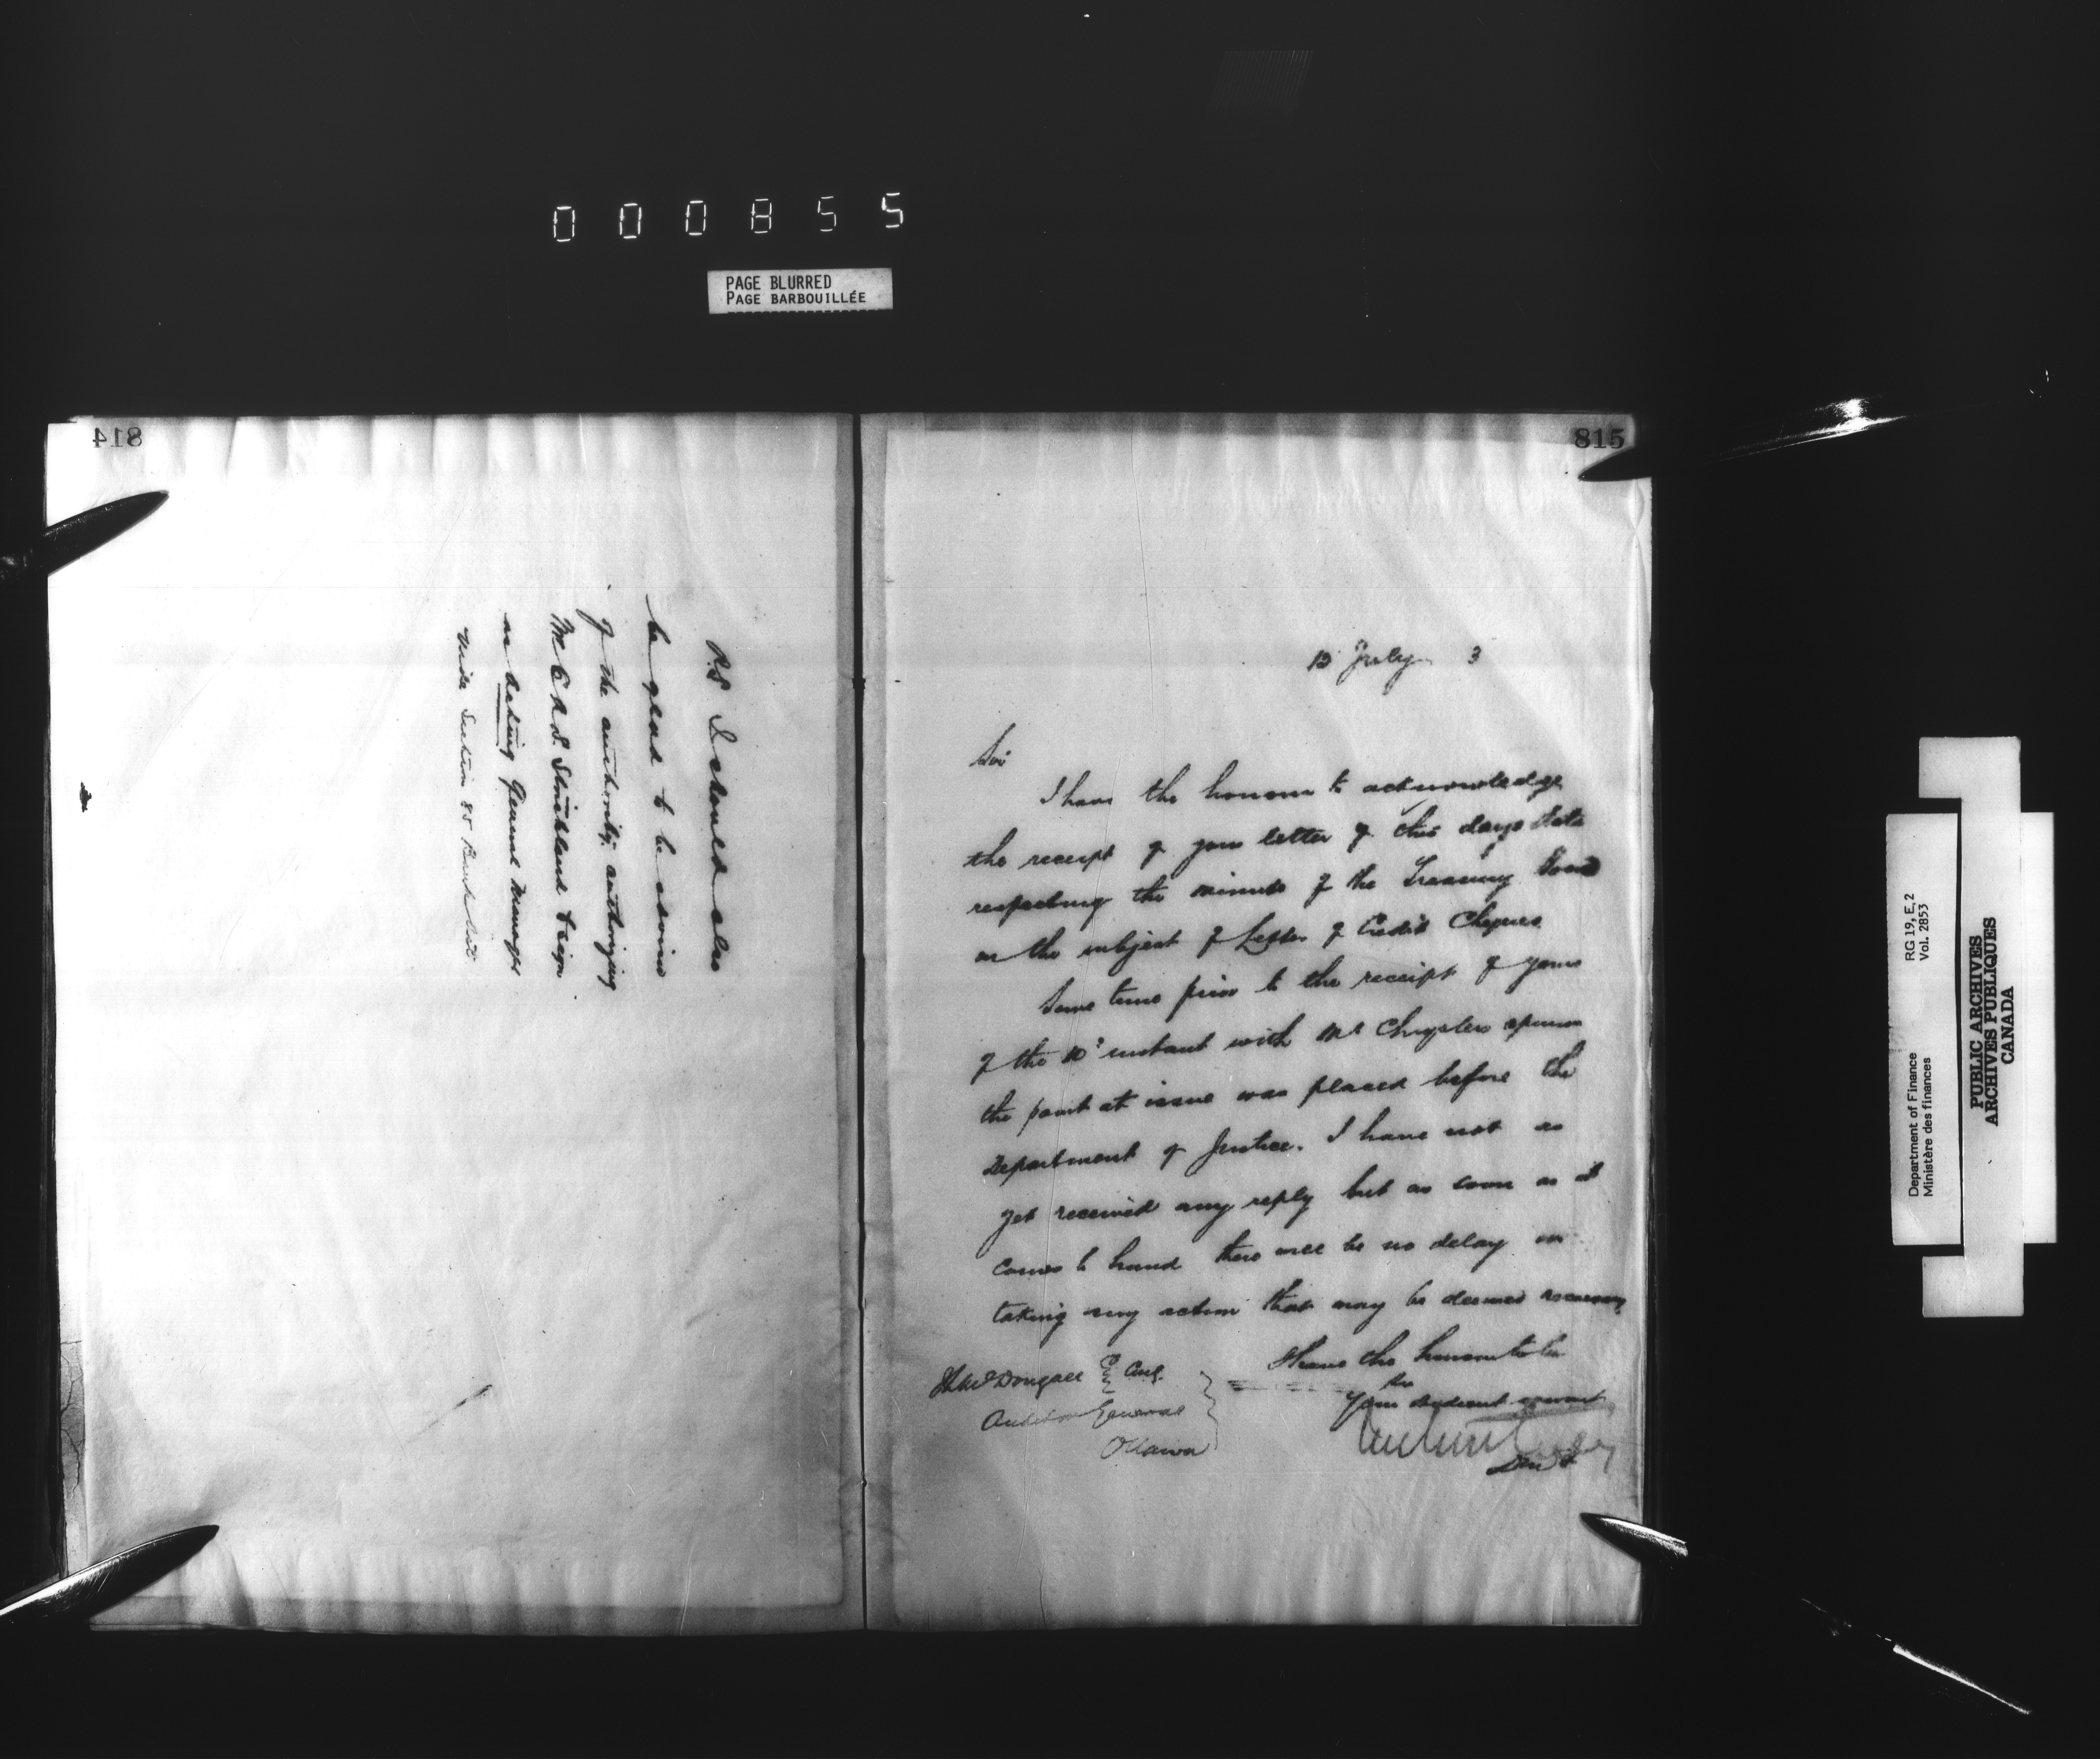 000855
PAGE BLURRED
PAGE BARBOUILLÉE
814
P.S. I should also
be glad to be advised
of the authority authorizing
Mr to sign
as Acting General Manager
vide Section 85 Bank Act
815
13 July 3
Sir
I have the honour to acknowledge
the receipt of your letter of this days date
respecting the minute of the Treasury Board
on the subject of Letter of Credit Cheques.
Some time prior to the receipt of yours
of the 10th instant with Mr Chryslers opinion
the point at issue was placed before the
Department of Justice. I have not as
yet received any reply but as soon as it
comes to hand there will be no delay in
taking any action that may be deemed necessary
I have the honour to be
Sir
Your obedient servant
McDougall Esq.
Auditor General
Ottawa
Department of Finance
Ministère des finances
RG 19, E, 2
Vol. 2853
PUBLIC ARCHIVES
ARCHIVES PUBLIQUES
CANADA